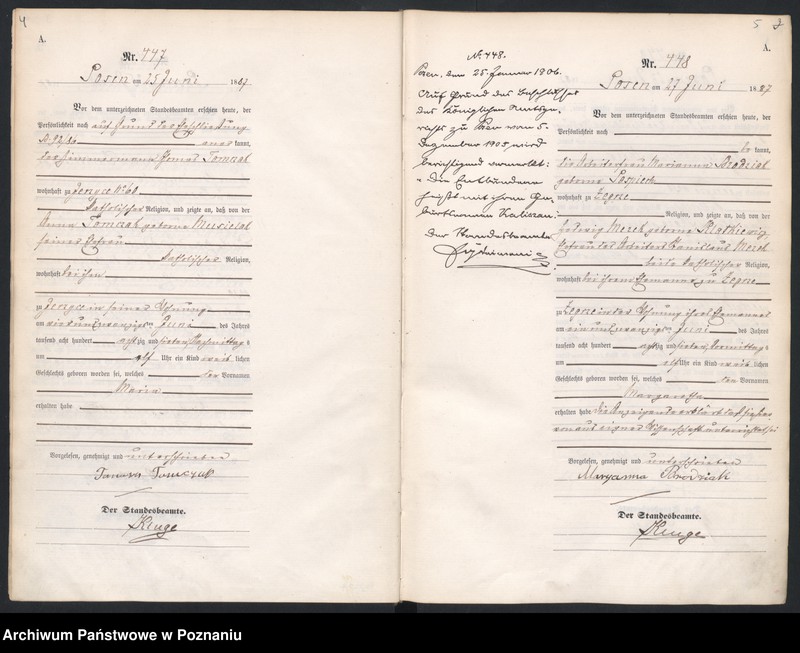 4
A.
Nr. 447
Posen am 25 Juni 1887
Vor dem unterzeichneten Standesbeamten erschien heute, der
Persönlichkeit nach auf Grund des
kannt,
der Zimmermann Thomas Tomczak
wohnhaft zu Jerzyce
katholischer Religion, und zeigte an, daß von der
Anna Tomczak geborene Musielak
seiner Ehefrau
katholischer Religion,
wohnhaft bei ihm
zu Jerzyce in seiner Wohnung
am ein und zwanzigsten Juni des Jahres
tausend acht hundert achtzig und sieben Nachmittags
um elf Uhr ein Kind weiblichen
Geschlechts geboren worden sei, welches den Vornamen
Maria
erhalten habe
Vorgelesen, genehmigt und unterschrieben
Tomczak
Der Standesbeamte.
Kluge
5
A.
No. 448.
Posen, den 25. Januar 1906.
Auf Grund des Beschlusses
des Königlichen Amtsge-
richts zu Posen vom 5.
Dezember 1905 wird
berichtigend vermerkt:
"Die Entbundene
heißt mit ihrem Ge-
burtsnamen
Der Standesbeamte
Nr. 448
Posen am 27 Juni 1887
Vor dem unterzeichneten Standesbeamten erschien heute, der
Persönlichkeit nach
be kannt,
die Arbeiterfrau Marianna Brodziak
geborene Pospiech
wohnhaft zu Zegrze
Religion, und zeigte an, daß von der
Hedwig geborene
Ehefrau des Arbeiters Stanislaus
beide katholischer Religion,
wohnhaft bei ihrem Ehemanne zu Zegrze
zu Zegrze in der Wohnung ihres Ehemannes
am ein und zwanzigsten Juni des Jahres
tausend acht hundert achtzig und sieben Vormittags
um elf Uhr ein Kind weiblichen
Geschlechts geboren worden sei, welches den Vornamen
Margaretha
erhalten habe. Die Anzeigende erklärt daß sie hier
von aus eigener Wissenschaft unterrichtet sei
Vorgelesen, genehmigt und unterschrieben
Maryanna Brodziak
Der Standesbeamte.
Kluge
Archiwum Państwowe w Poznaniu